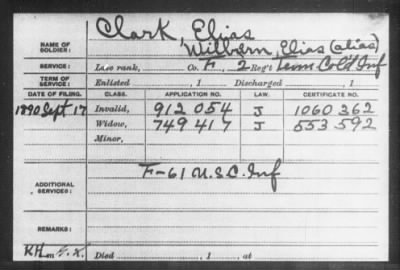 Clark, Elias
NAME OF SOLDIER: Wilburn, Elias (alias)
SERVICE: Late rank, Co. F, 2 Reg't Tenn Col'd Inf
TERM OF SERVICE: Enlisted , 1 Discharged , 1
DATE OF FILING. CLASS. APPLICATION NO. LAW. CERTIFICATE NO.
1890 Sept 17 Invalid, 912 054 J 1060 362
Widow, 749 417 J 553 592
Minor,
F-61 U.S.C. Inf
ADDITIONAL SERVICES:
REMARKS:
Died , 1 , at